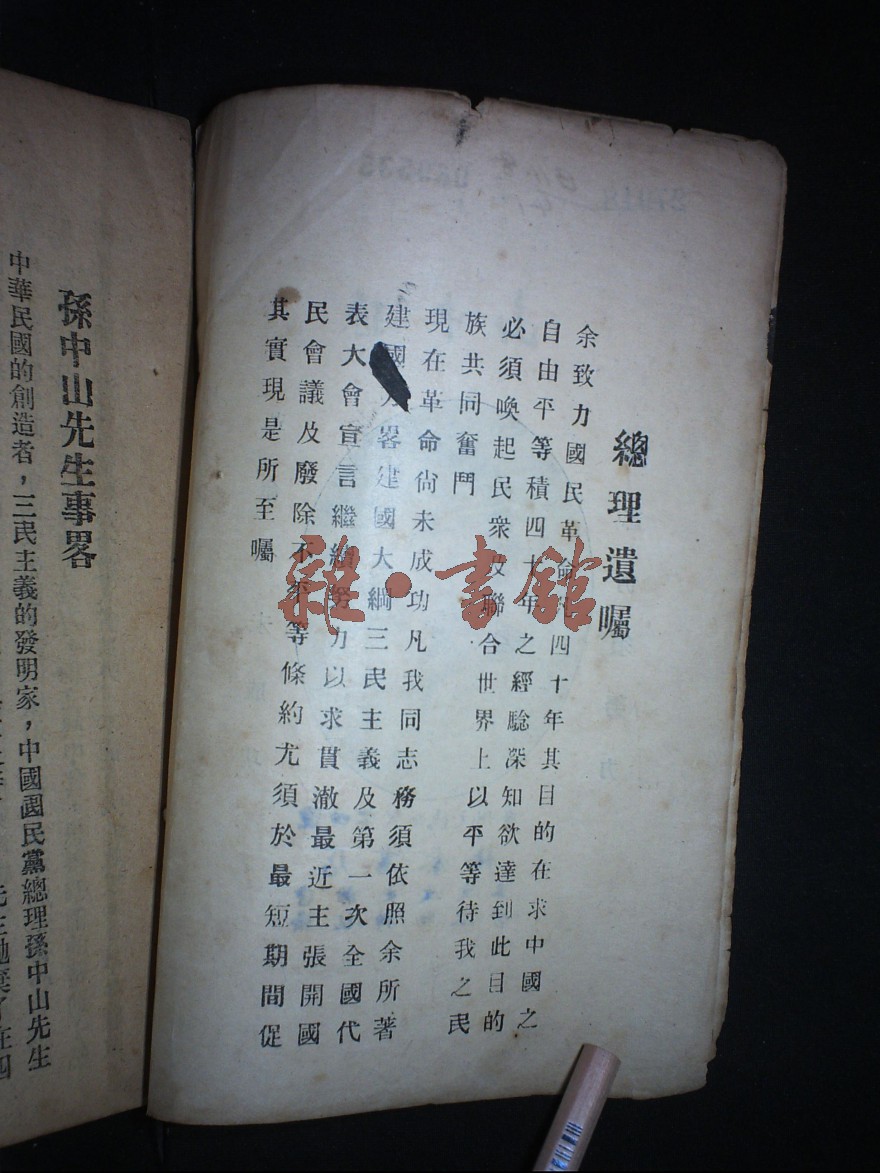 總理遺囑
余致力國民革命凡四十年其目的在求中國之
自由平等積四十年之經驗深知欲達到此目的
必須喚起民衆及聯合世界上以平等待我之民
族共同奮鬥
現在革命尙未成功凡我同志務須依照余所著
建國方畧建國大綱三民主義及第一次全國代
表大會宣言繼續努力以求貫澈最近主張開國
民會議及廢除不平等條約尤須於最短期間促
其實現是所至囑
雜·書館
孫中山先生事畧
中華民國的創造者，三民主義的發明家，中國國民黨總理孫中山先生